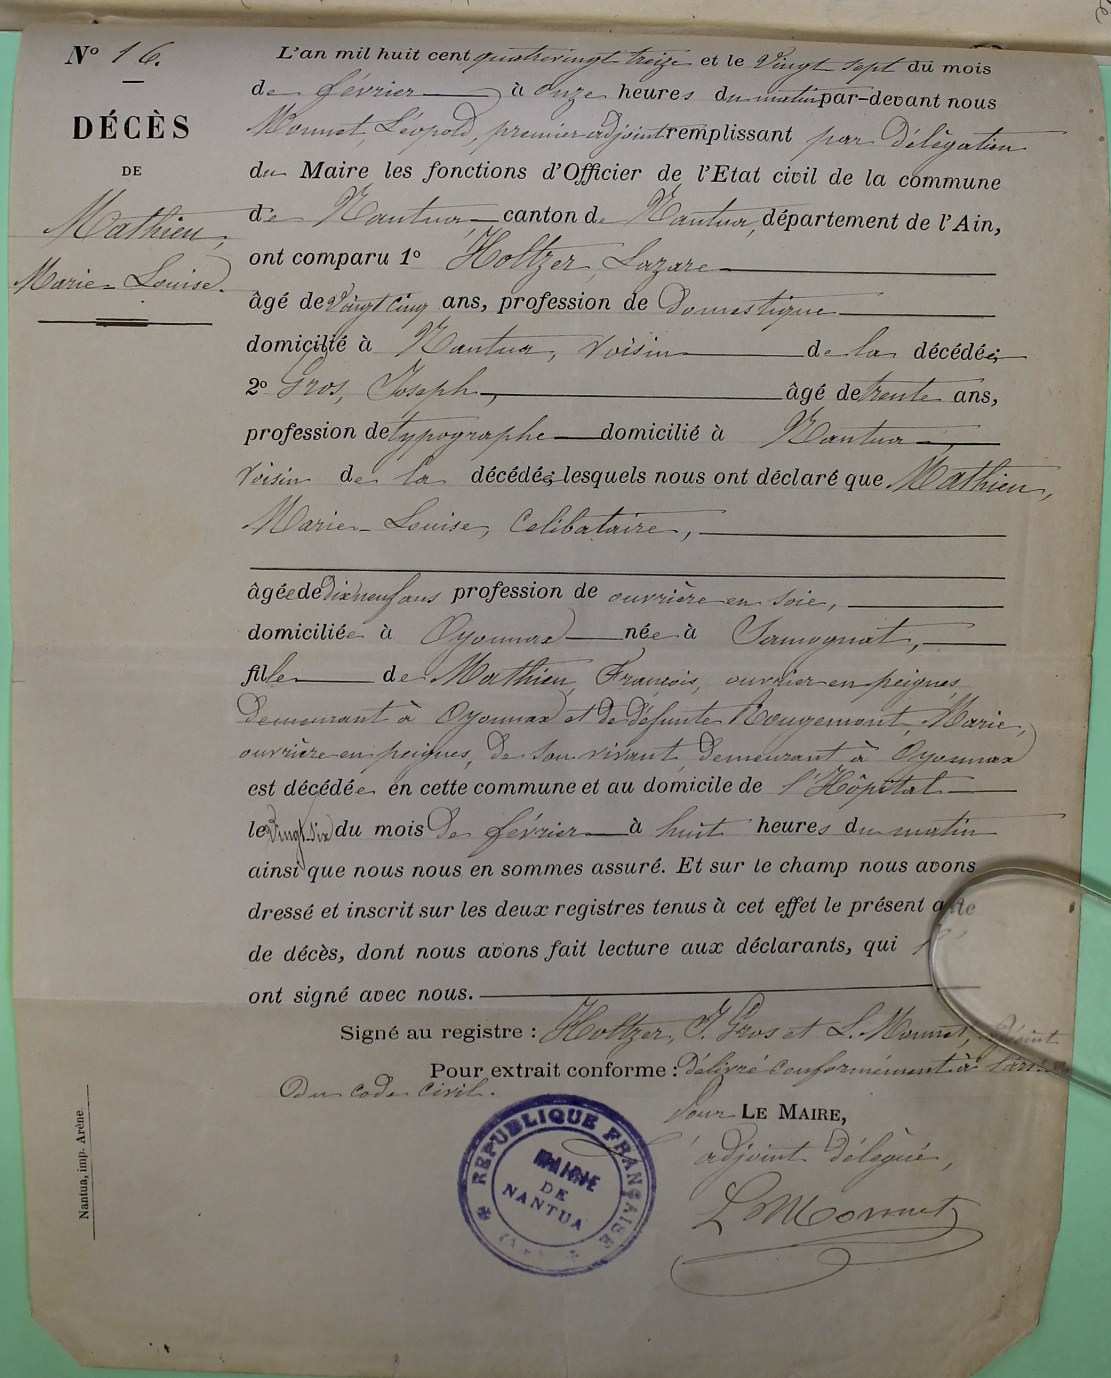 N° 16.
DÉCÈS
DE
Mathieu,
Marie-Louise.
L'an mil huit cent quatrevingt treize et le vingt sept du mois
de février à onze heures du matin par-devant nous
Monnet, Léopold, premier adjoint remplissant par délégation
du Maire les fonctions d'Officier de l'Etat civil de la commune
de Nantua, canton de Nantua, département de l'Ain,
ont comparu 1° Holtzer, Lazare
âgé de vingt cinq ans, profession de Domestique
domicilié à Nantua, voisin de la décédée;
2° Gros, Joseph, âgé de trente ans,
profession de typographe domicilié à Nantua,
voisin de la décédée; lesquels nous ont déclaré que Mathieu,
Marie-Louise, célibataire,
âgée de dix neuf ans profession de ouvrière en soie,
domiciliée à Oyonnax née à Samognat,
fille de Mathieu, François, ouvrier en peignes,
demeurant à Oyonnax et de défunte Rougemont, Marie,
ouvrière en peignes, de son vivant, demeurant à Oyonnax
est décédée en cette commune et au domicile de l'Hôpital
le vingt six du mois de février à huit heures du matin
ainsi que nous nous en sommes assuré. Et sur le champ nous avons
dressé et inscrit sur les deux registres tenus à cet effet le présent acte
de décès, dont nous avons fait lecture aux déclarants, qui
ont signé avec nous.
Signé au registre : Holtzer, J. Gros et L. Monnet, adjoint
Pour extrait conforme : délivré conformément à
du code civil.
Pour LE MAIRE,
adjoint délégué,
L Monnet
RÉPUBLIQUE FRANÇAISE
MAIRIE
DE
NANTUA
(AIN)
Nantua, imp. Arène